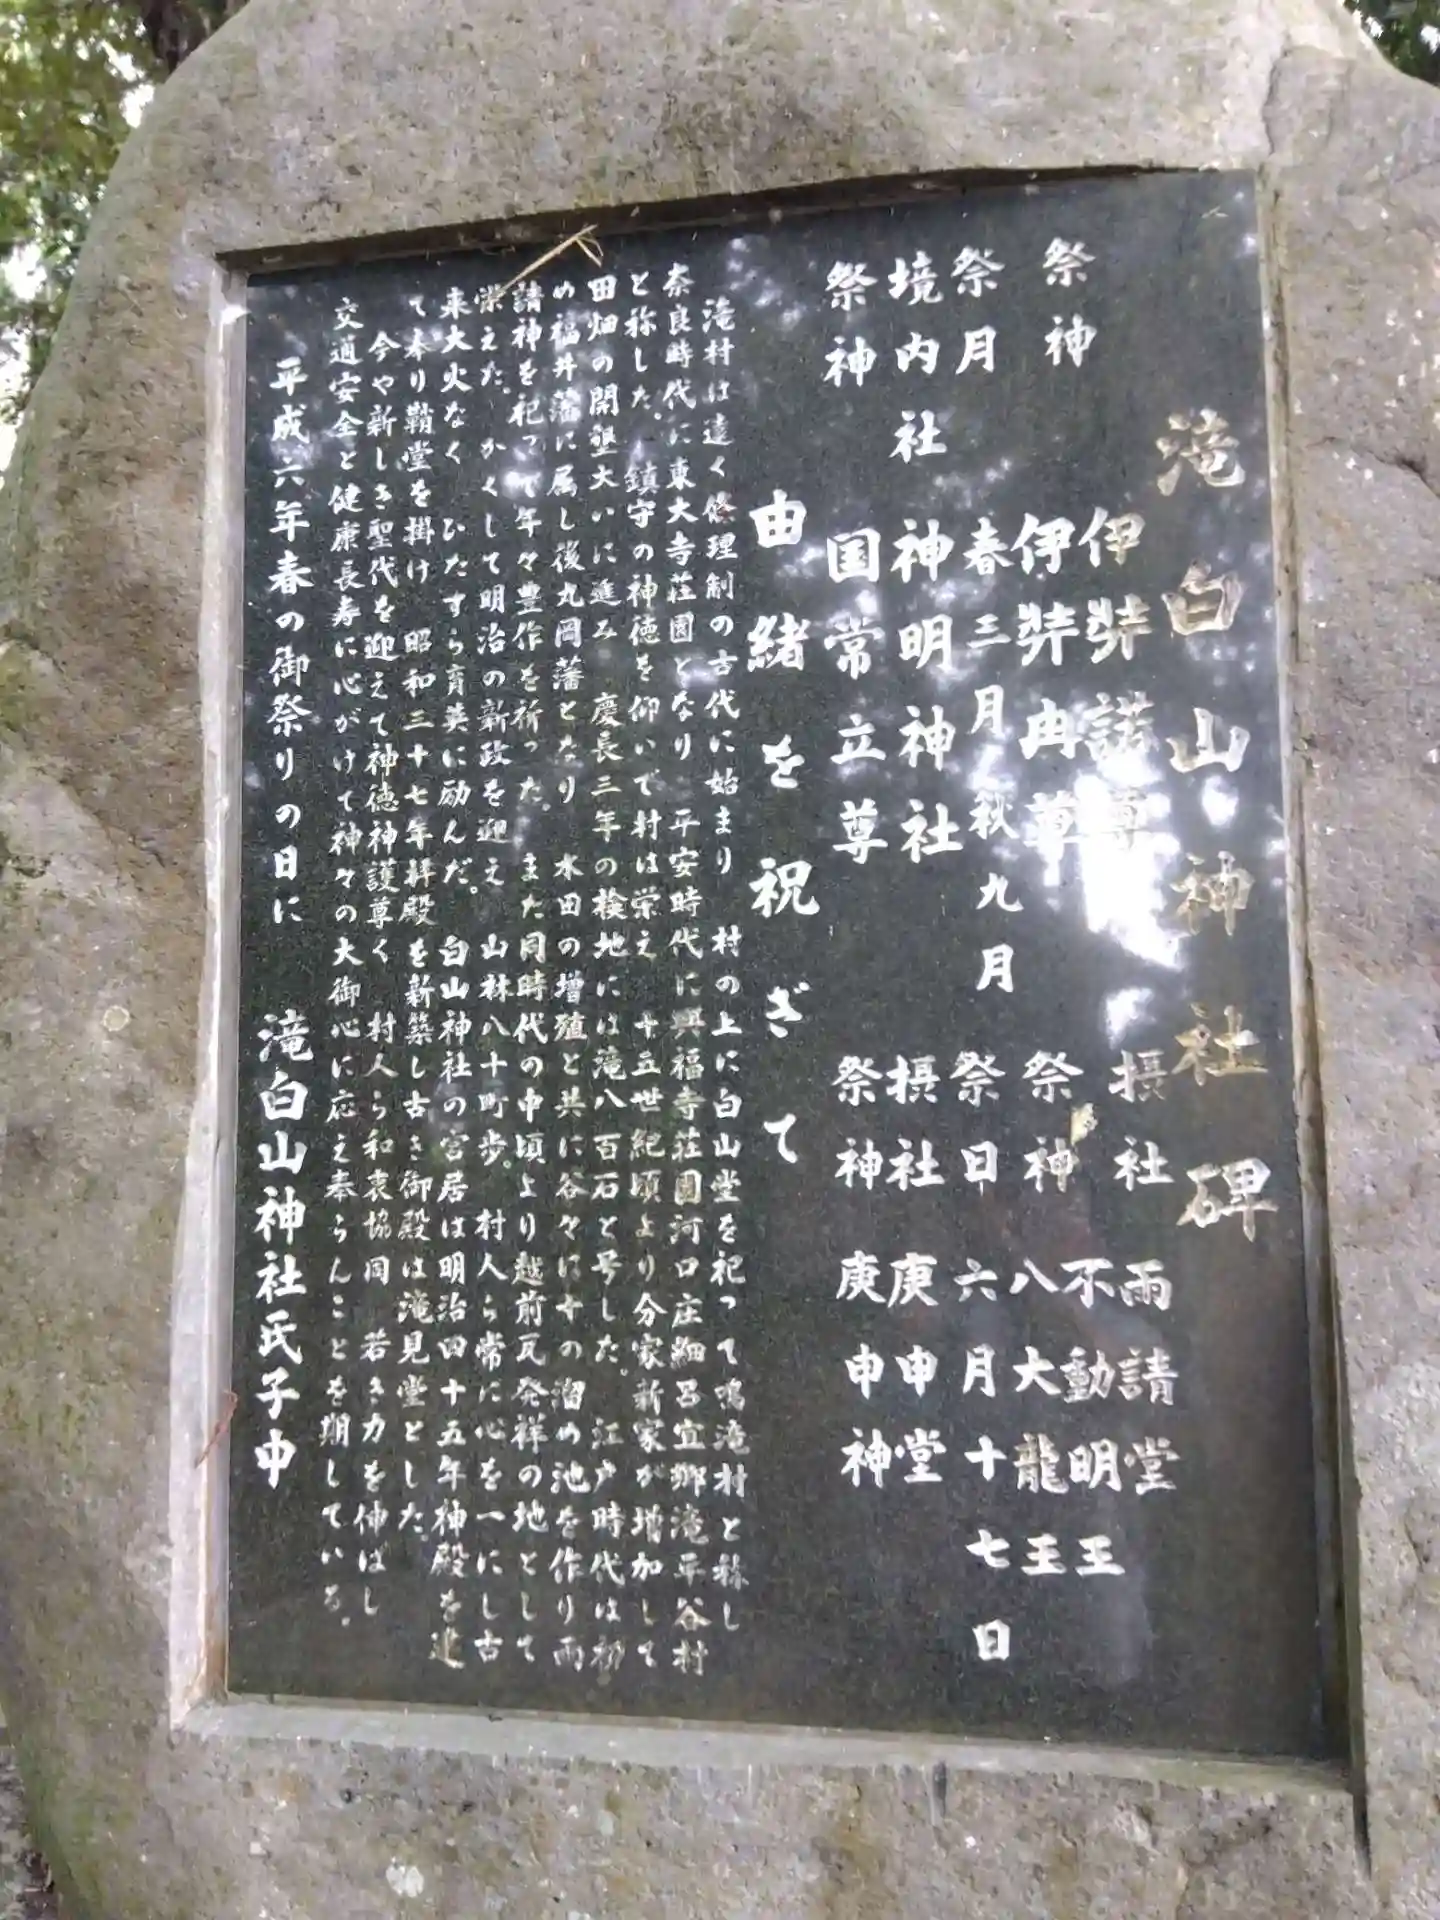 滝白山神社碑
祭神 伊弉諾尊 摂社 雨請堂
伊弉冉尊 祭神 不動明王
八大龍王
祭月 春三月、秋九月 祭日 六月十七日
境内社 神明神社 摂社 庚申堂
祭神 国常立尊 祭神 庚申神
由緒を祝ぎて
滝村は遠く修理制の古代に始まり 村の上に白山堂を祀って鳴滝村と称し
奈良時代に東大寺荘園となり 平安時代に興福寺荘園河口庄細呂宜郷滝平谷村
と称した。鎮守の神徳を仰いで村は栄え 十五世紀頃より分家新家が増加して
田畑の開墾大いに進み 慶長三年の検地には滝八百石と号した。江戸時代は初
め福井藩に属し後九岡藩となり 水田の増殖と共に谷々に十の溜め池を作り雨
請神を祀って年々豊作を祈った。また同時代の中頃より越前瓦発祥の地として
栄えた。かくして明治の新政を迎え 山林八十町歩。村人ら常に心を一にし古
来大火なく ひたすら育英に励んだ。白山神社の宮居は明治四十五年神殿を建
て奉り鞘堂を掛け 昭和三十七年拝殿を新築し古き御殿は滝見堂とした。
今や新しき聖代を迎えて神徳神護尊く 村人ら和衷協同 若き力を伸ばし
交通安全と健康長寿に心がけて神々の大御心に応え奉らんことを期している。
平成六年春の御祭りの日に 滝白山神社氏子中